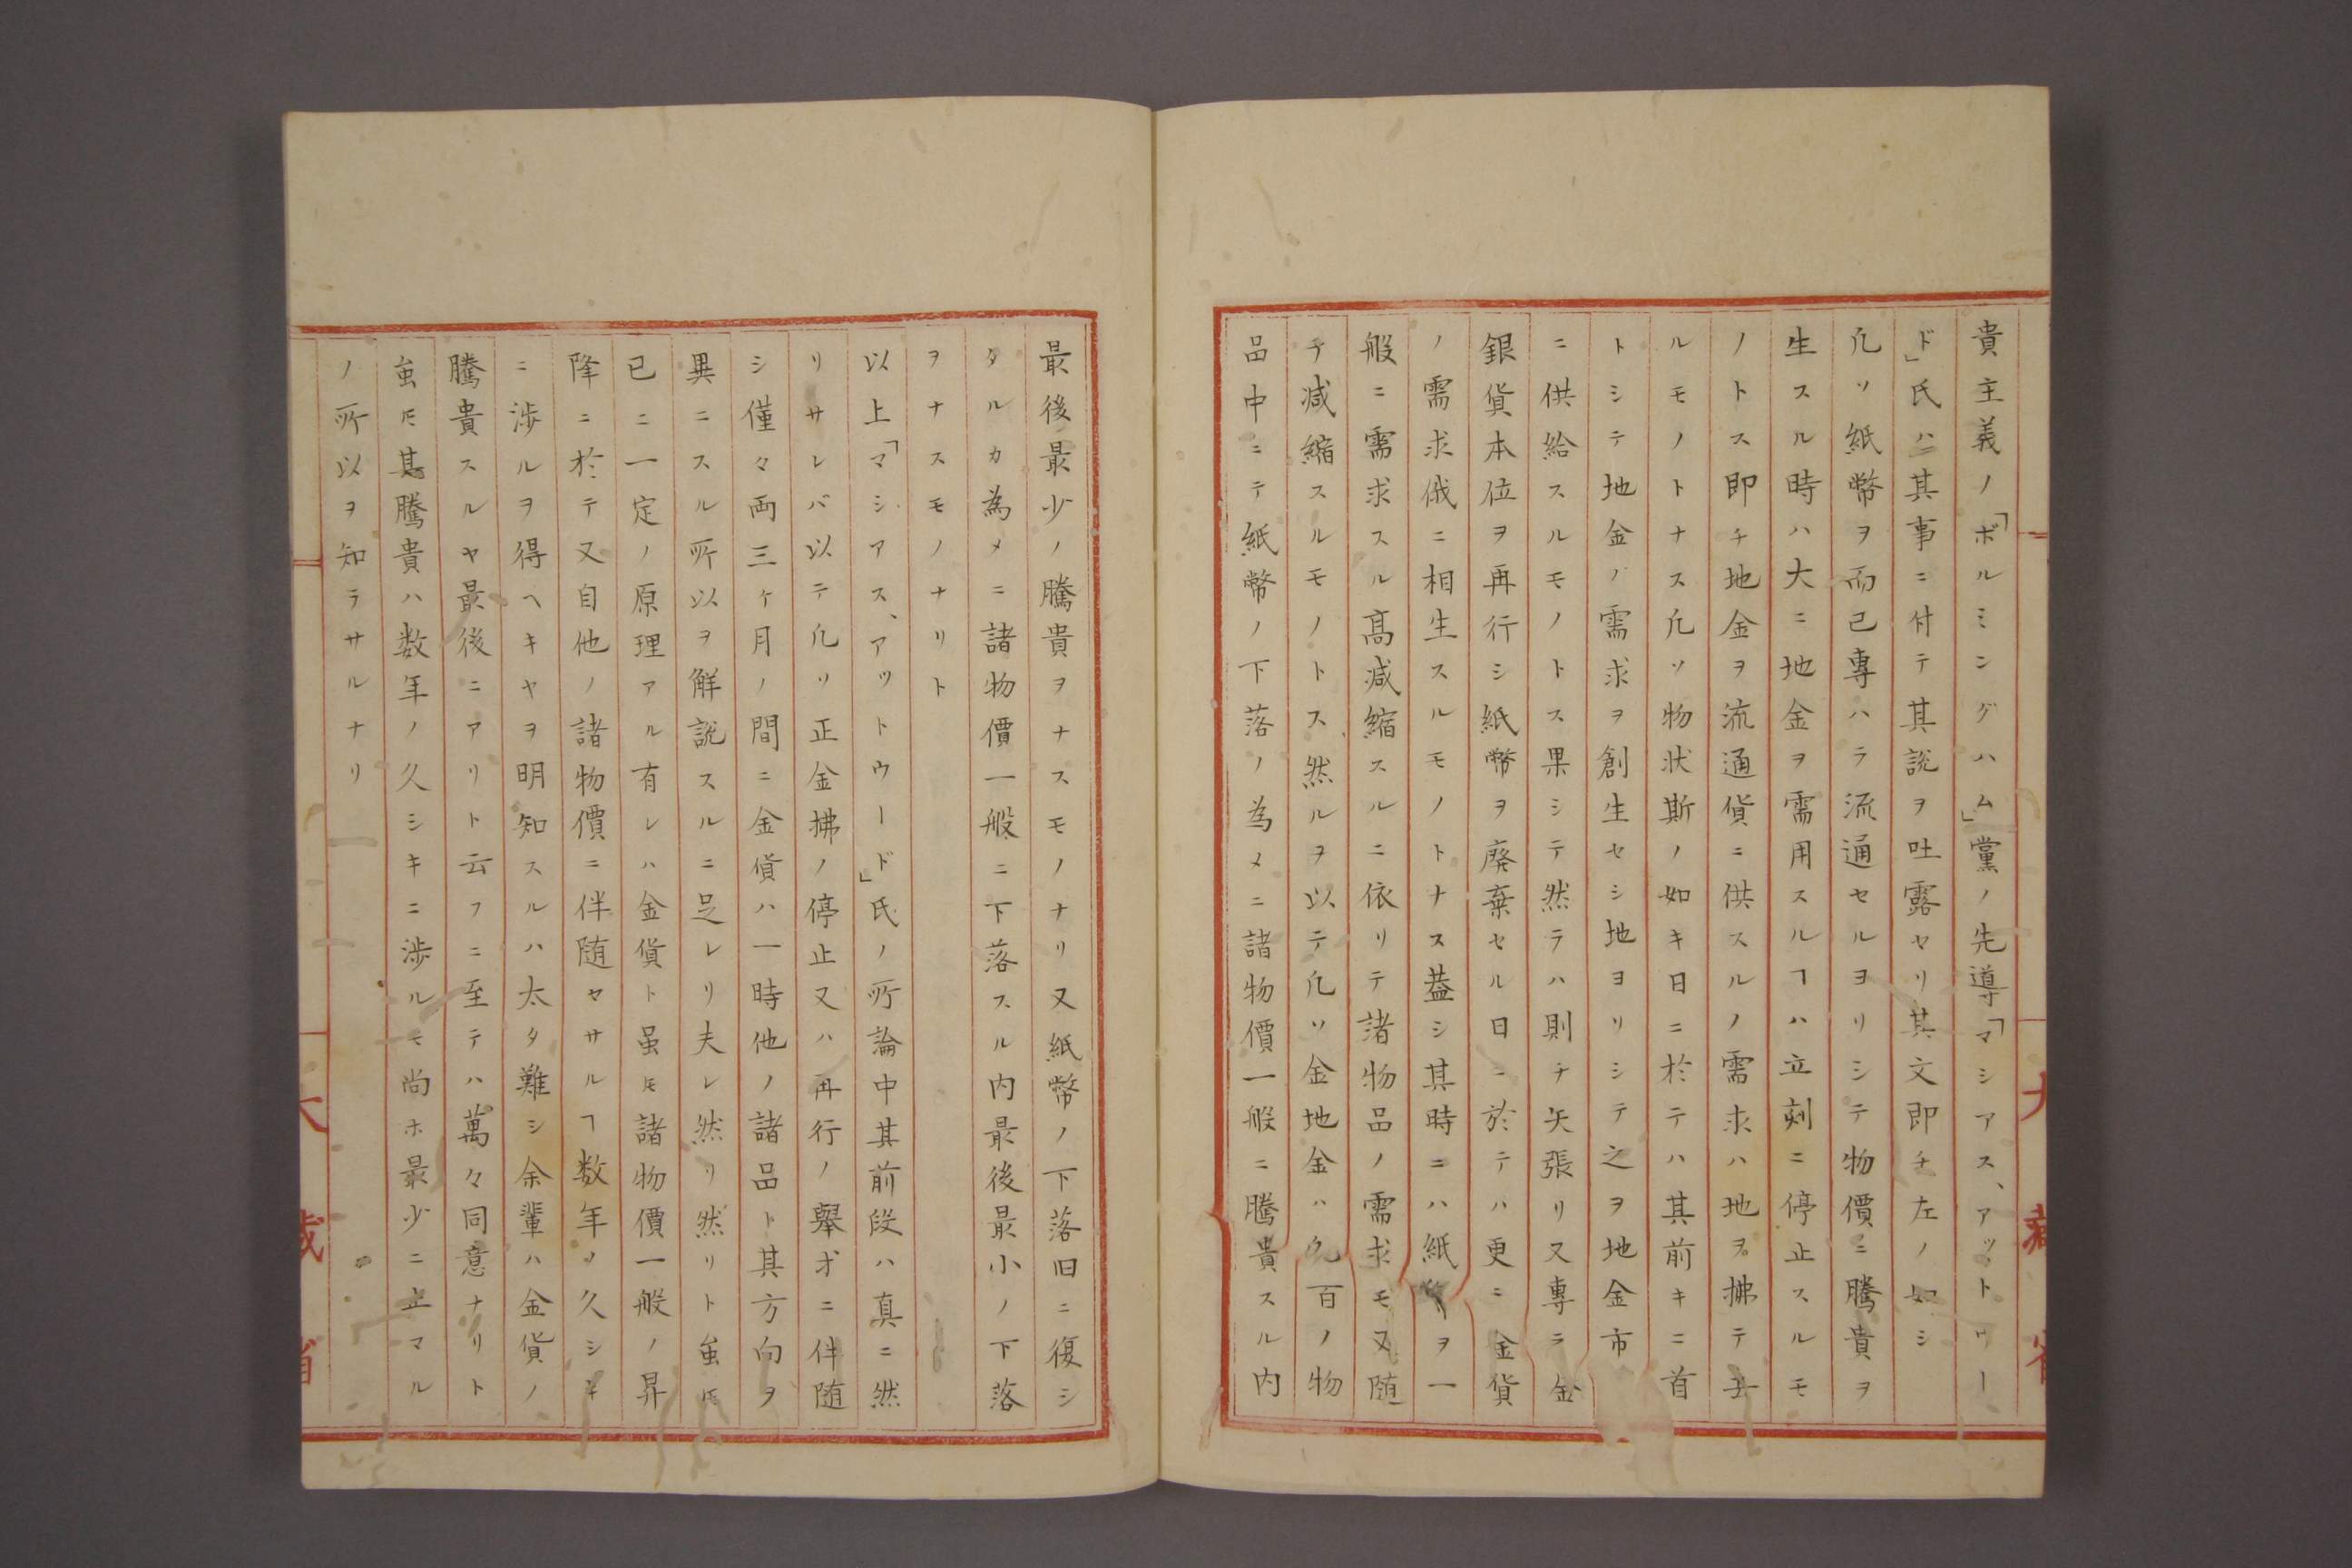 貴主義ノ「ボルミングハム」黨ノ先導「マシアス、アットウー
ド」氏ハ其事ニ付テ其說ヲ吐露セリ其文即チ左ノ如シ
凡ソ紙幣ヲ而已專ハラ流通セルヨリシテ物價ニ騰貴ヲ
生スル時ハ大ニ地金ヲ需用スルヿハ立刻ニ停止スルモ
ノトス即チ地金ヲ流通貨ニ供スルノ需求ハ地ヲ拂テ去
ルモノトナス凡ソ物状斯ノ如キ日ニ於テハ其前キニ首
トシテ地金ノ需求ヲ創生セシ地ヨリシテ之ヲ地金市
ニ供給スルモノトス果シテ然ラハ則チ矢張リ又專ラ金
銀貨本位ヲ再行シ紙幣ヲ廃棄セル日ニ於テハ更ニ金貨
ノ需求俄ニ相生スルモノトナス蓋シ其時ニハ紙幣ヲ一
般ニ需求スル髙减縮スルニ依リテ諸物品ノ需求モ又随
テ减縮スルモノトス然ルヲ以テ凡ソ金地金ハ凡百ノ物
品中ニテ紙幣ノ下落ノ為メニ諸物價一般ニ騰貴スル内
最後最少ノ騰貴ヲナスモノナリ又紙幣ノ下落旧ニ復シ
タルカ為メニ諸物價一般ニ下落スル内最後最小ノ下落
ヲナスモノナリト
以上「マシアス、アットウード」氏ノ所論中其前段ハ真ニ然
リサレバ以テ凡ソ正金拂ノ停止又ハ再行ノ舉才ニ伴随
シ僅々両三ヶ月ノ間ニ金貨ハ一時他ノ諸品ト其方向ヲ
異ニスル所以ヲ解説スルニ足レリ夫レ然リ然リト虽𪜈
已ニ一定ノ原理アル有レハ金貨ト虽𪜈諸物價一般ノ昇
降ニ於テ又自他ノ諸物價ニ伴随セサルヿ数年ノ久シキ
ニ渉ルヲ得ヘキヤヲ明知スルハ太タ難シ余輩ハ金貨ノ
騰貴スルヤ最後ニアリト云フニ至テハ萬々同意ナリト
虽𪜈其騰貴ハ数年ノ久シキニ渉ルモ尚ホ最少ニ止マル
ノ所以ヲ知ラサルナリ
大藏省